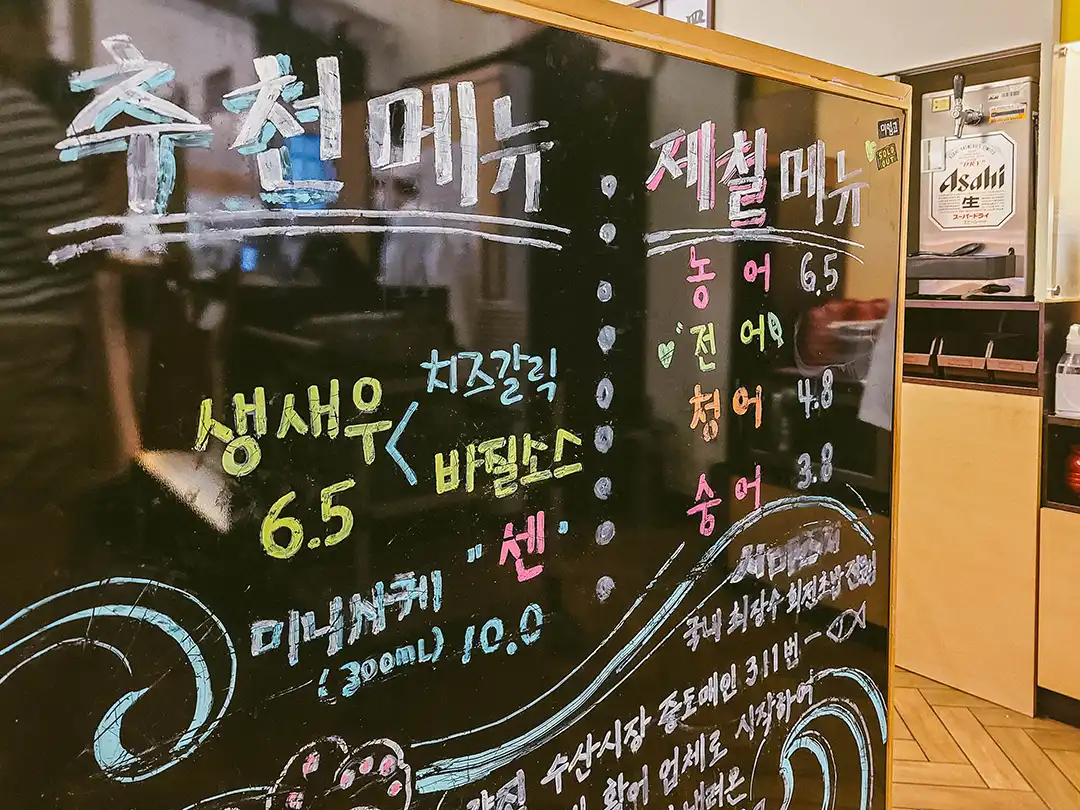 추천메뉴
치즈갈릭
생새우 <
바질소스
6.5
"센"
미니사케
(300mL) 10.0
제철메뉴
농어 6.5
전어
청어 4.8
숭어 3.8
국내 최장수 회전초밥 전문
수산시장 중도매인 311번
활어 업체로 시작하여
내려온
SOLD OUT
Asahi
生
スーパードライ